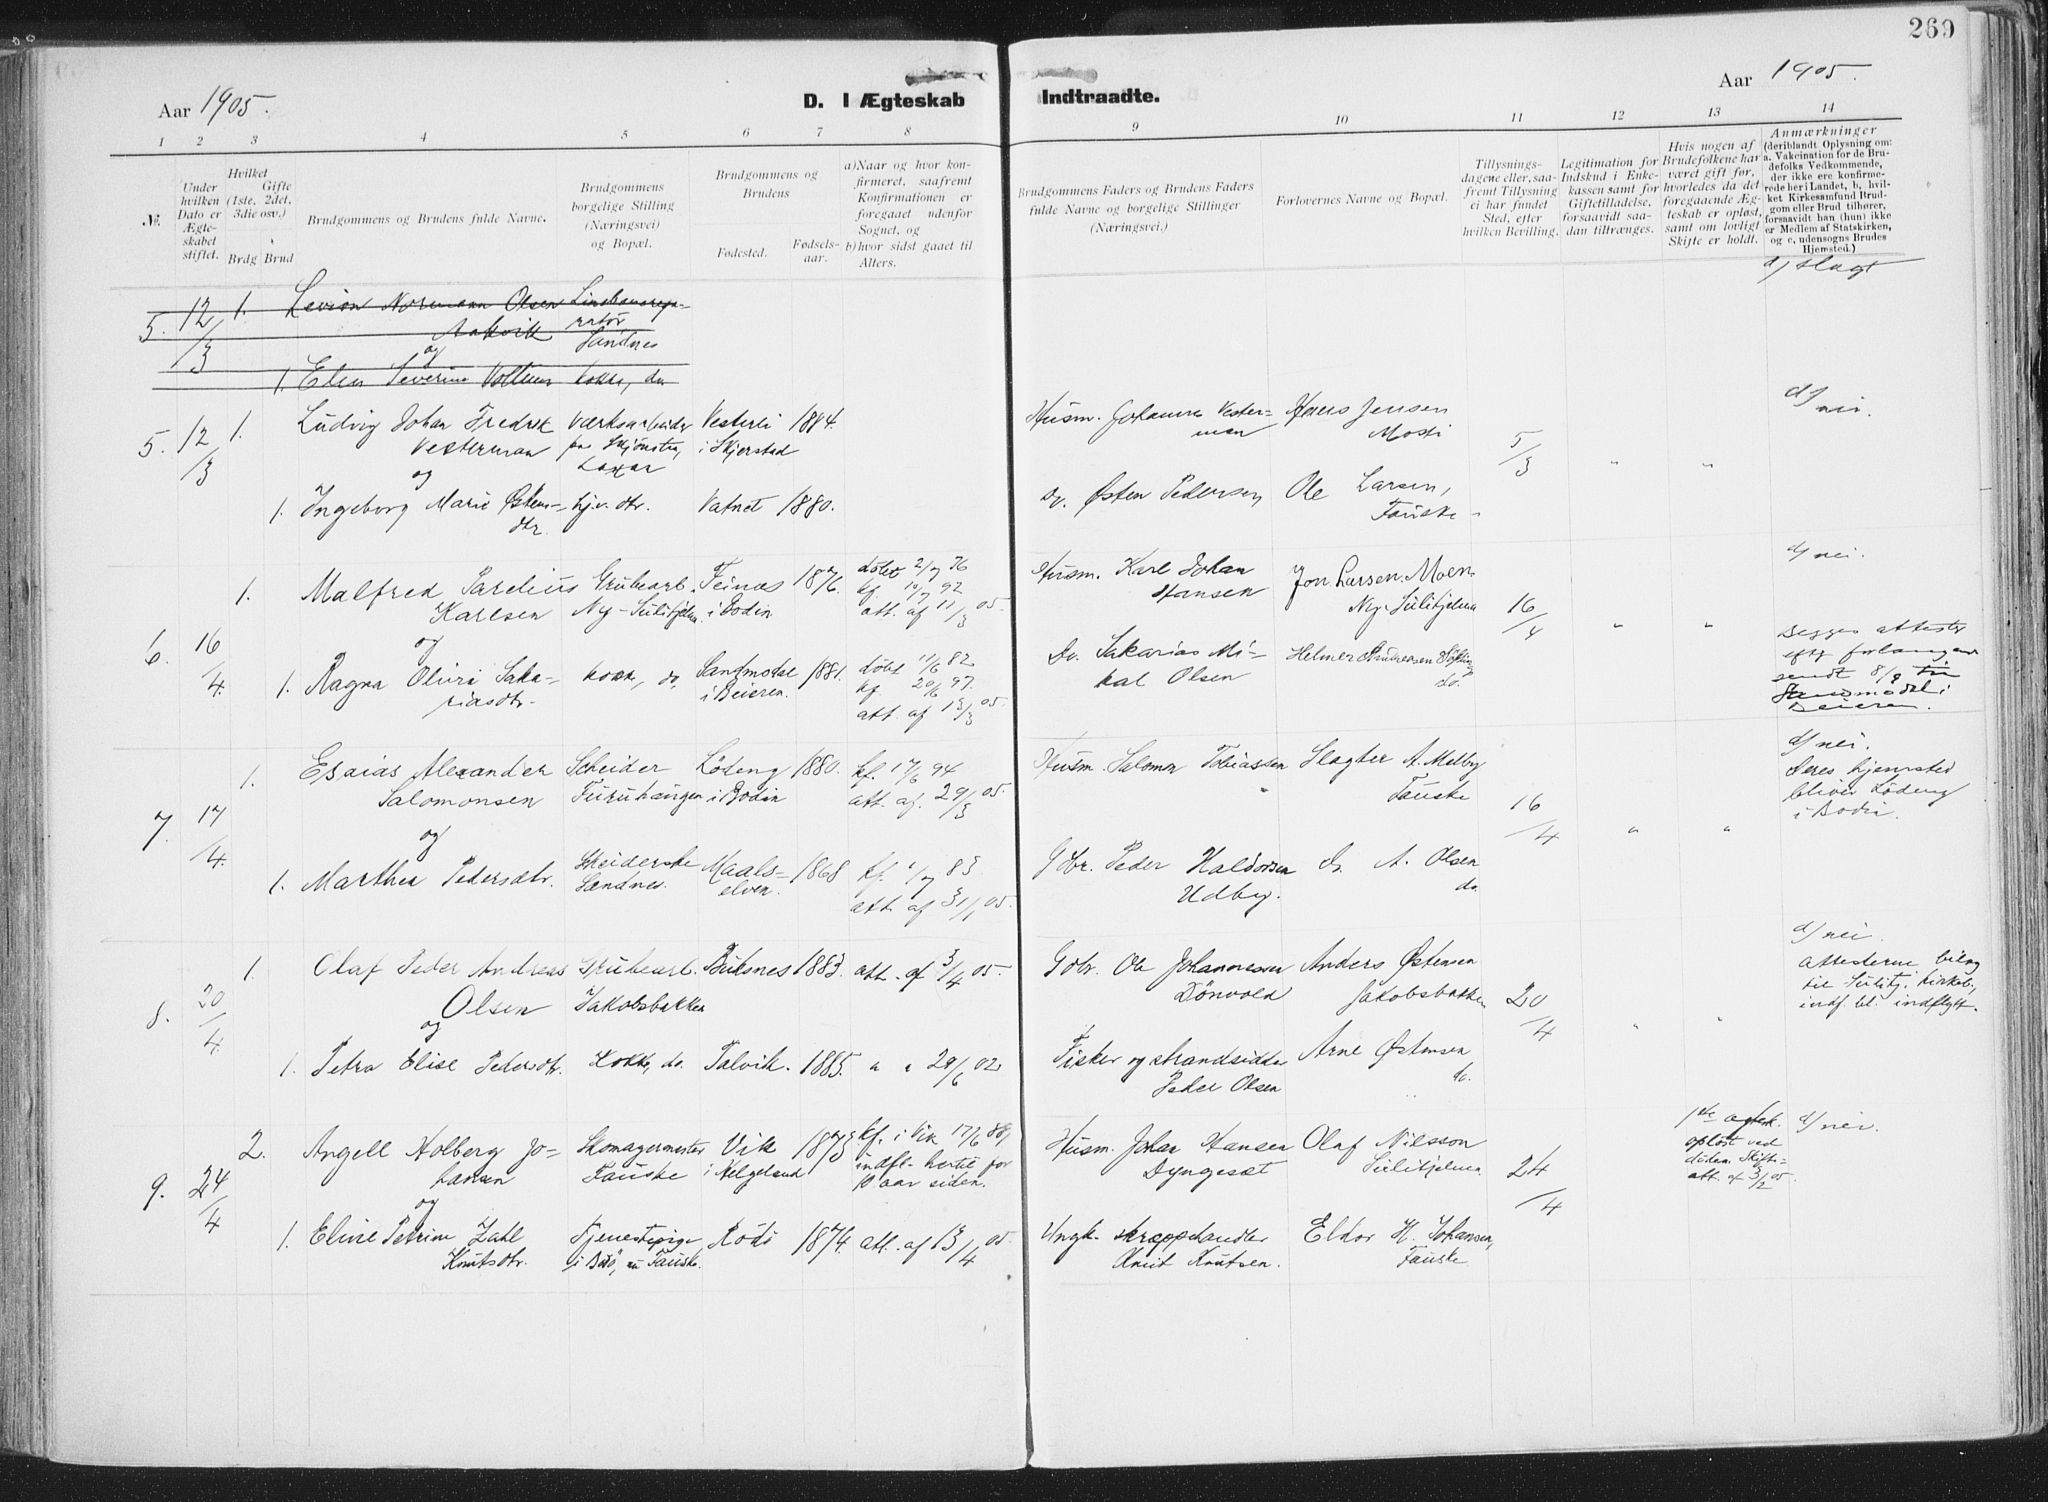 269
Aar 1905.
D. I Ægteskab Indtraadte.
Aar 1905.
1 2 3 4 5 6 7 8 9 10 11 12 13 14
№.
Under hvilken Dato er Ægteskabet stiftet.
Hvilket Gifte (1ste, 2det, 3die osv.)
Brdg Brud
Brudgommens og Brudens fulde Navne.
Brudgommens borgelige Stilling (Næringsvei) og Bopæl.
Brudgommens og Brudens
Fødested.
Fødselsaar.
a) Naar og hvor konfirmeret, saafremt Konfirmationen er foregaaet udenfor Sognet, og
b) hvor sidst gaaet til Alters.
Brudgommens Faders og Brudens Faders fulde Navne og borgelige Stillinger (Næringsvei.)
Forlovernes Navne og Bopæl.
Tillysningsdagene eller, saafremt Tillysning ei har fundet Sted, efter hvilken Bevilling.
Legitimation for Indskud i Enkekassen samt for Giftetilladelse, forsaavidt saadan tiltrænges.
Hvis nogen af Brudefolkene har været gift før, hvorledes da det foregaaende Ægteskab er opløst, samt om lovligt Skifte er holdt.
Anmærkninger (deriblandt Oplysning om: a. Vakcination for de Brudefolks Vedkommende, der ikke ere konfirmerede her i Landet, b, hvilket Kirkesamfund Brudgom eller Brud tilhører, forsaavidt han (hun) ikke er Medlem af Statskirken, og c, udensogns Brudes Hjemsted.)
d/ slegt
5. 12/3 1. Levion Normann Olsen
Aakvik Sandnes
og
1. Elen Severine kokke, do
5. 12/3 1. Ludvig Johan Fredrik Værksarbeider Vesterli 1884. Husm. Johannes Vester- Hans Jensen 5/3 " " d/ nei.
Vesterman i Skjerstad man Mosti
og
1. Ingeborg Marie Østens- hj.v. dtr. Vatnet 1880. Do. Østen Pedersen, Ole Larsen,
dtr. Fauske
6. 16/4. 1. Malfred Parelius Grubearb. Feinæs 1876. døbt 2/7 76 Husm. Karl Johan Jon Larsen Moen 16/4 " " d/ nei.
Karlsen Ny-Sulitjelma i Bodin kf. 10/7 92 Hansen Ny-Sulitjelma
og att. af 11/3 05.
1. Ragna Olivi Saka- kokke, do, Sandmodse 1881. døbt 11/6 82 Do. Sakarias Mi- Helmer Andreassen Begges attester
riasdtr. i Beieren. kf. 20/6 97. kal Olsen do. efter forlangende
att. af 13/3 05. sendt 8/8
Beieren.
7. 17/4. 1. Esaias Alexander Scheider Løding 1880. kf. 17/6 94 Husm. Salomon Tobiassen Slagter A. Melby 16/4 " " d/ nei.
Salomonsen Furuhaugen i Bodin att. af. 29/3 05. Fauske Deres hjemsted
og bliver Løding
i Bodin.
1. Marthea Pedersdtr. Skeiderske Maals- 1868 kf. 1/7 83 Gdbr. Peder Haldorsen A. Olsen
Sandnes. elven. att. af 31/1 05. Udby. do.
8. 20/4. 1. Olaf Peder Andreas Grubearb. Buksnes 1883. att. af 3/4 05. Gdbr. Ole Johannessen Anders Østensen 20/4 " " d/ nei.
Olsen Jakobsbakken Dønvold Jakobsbakken attesterne bilag
og til Sulitj. kirkeb.,
indf. bl. indflytt.
1. Petra Elise Pedersdtr. Kokke, do. Palvik. 1885. " " 29/6 02 Fisker og strandsidder Arne Østensen
Peder Olsen do.
9. 24/4 2. Angell Holberg Jo- Skomagermester Vik 1873 kf. i Vik 17/6 88, Husm. Johan Hansen Olaf Nilsson 24/4 1ste ægtesk. d/ nei.
hansen Fauske i Helgeland indfl. hertil for Dyngesæt Sulitjelma opløst ved
og 10 aar siden. døden. Skifte-
att. af 3/2 05.
1. Eline Petrine Zahl Tjenestepige Rödö 1874. att. af 13/4 05. Ungk. skræppehandler Eldor H. Johansen,
Knutsdtr. i Bodö, nu Fauske. Knut Knutsen. Fauske